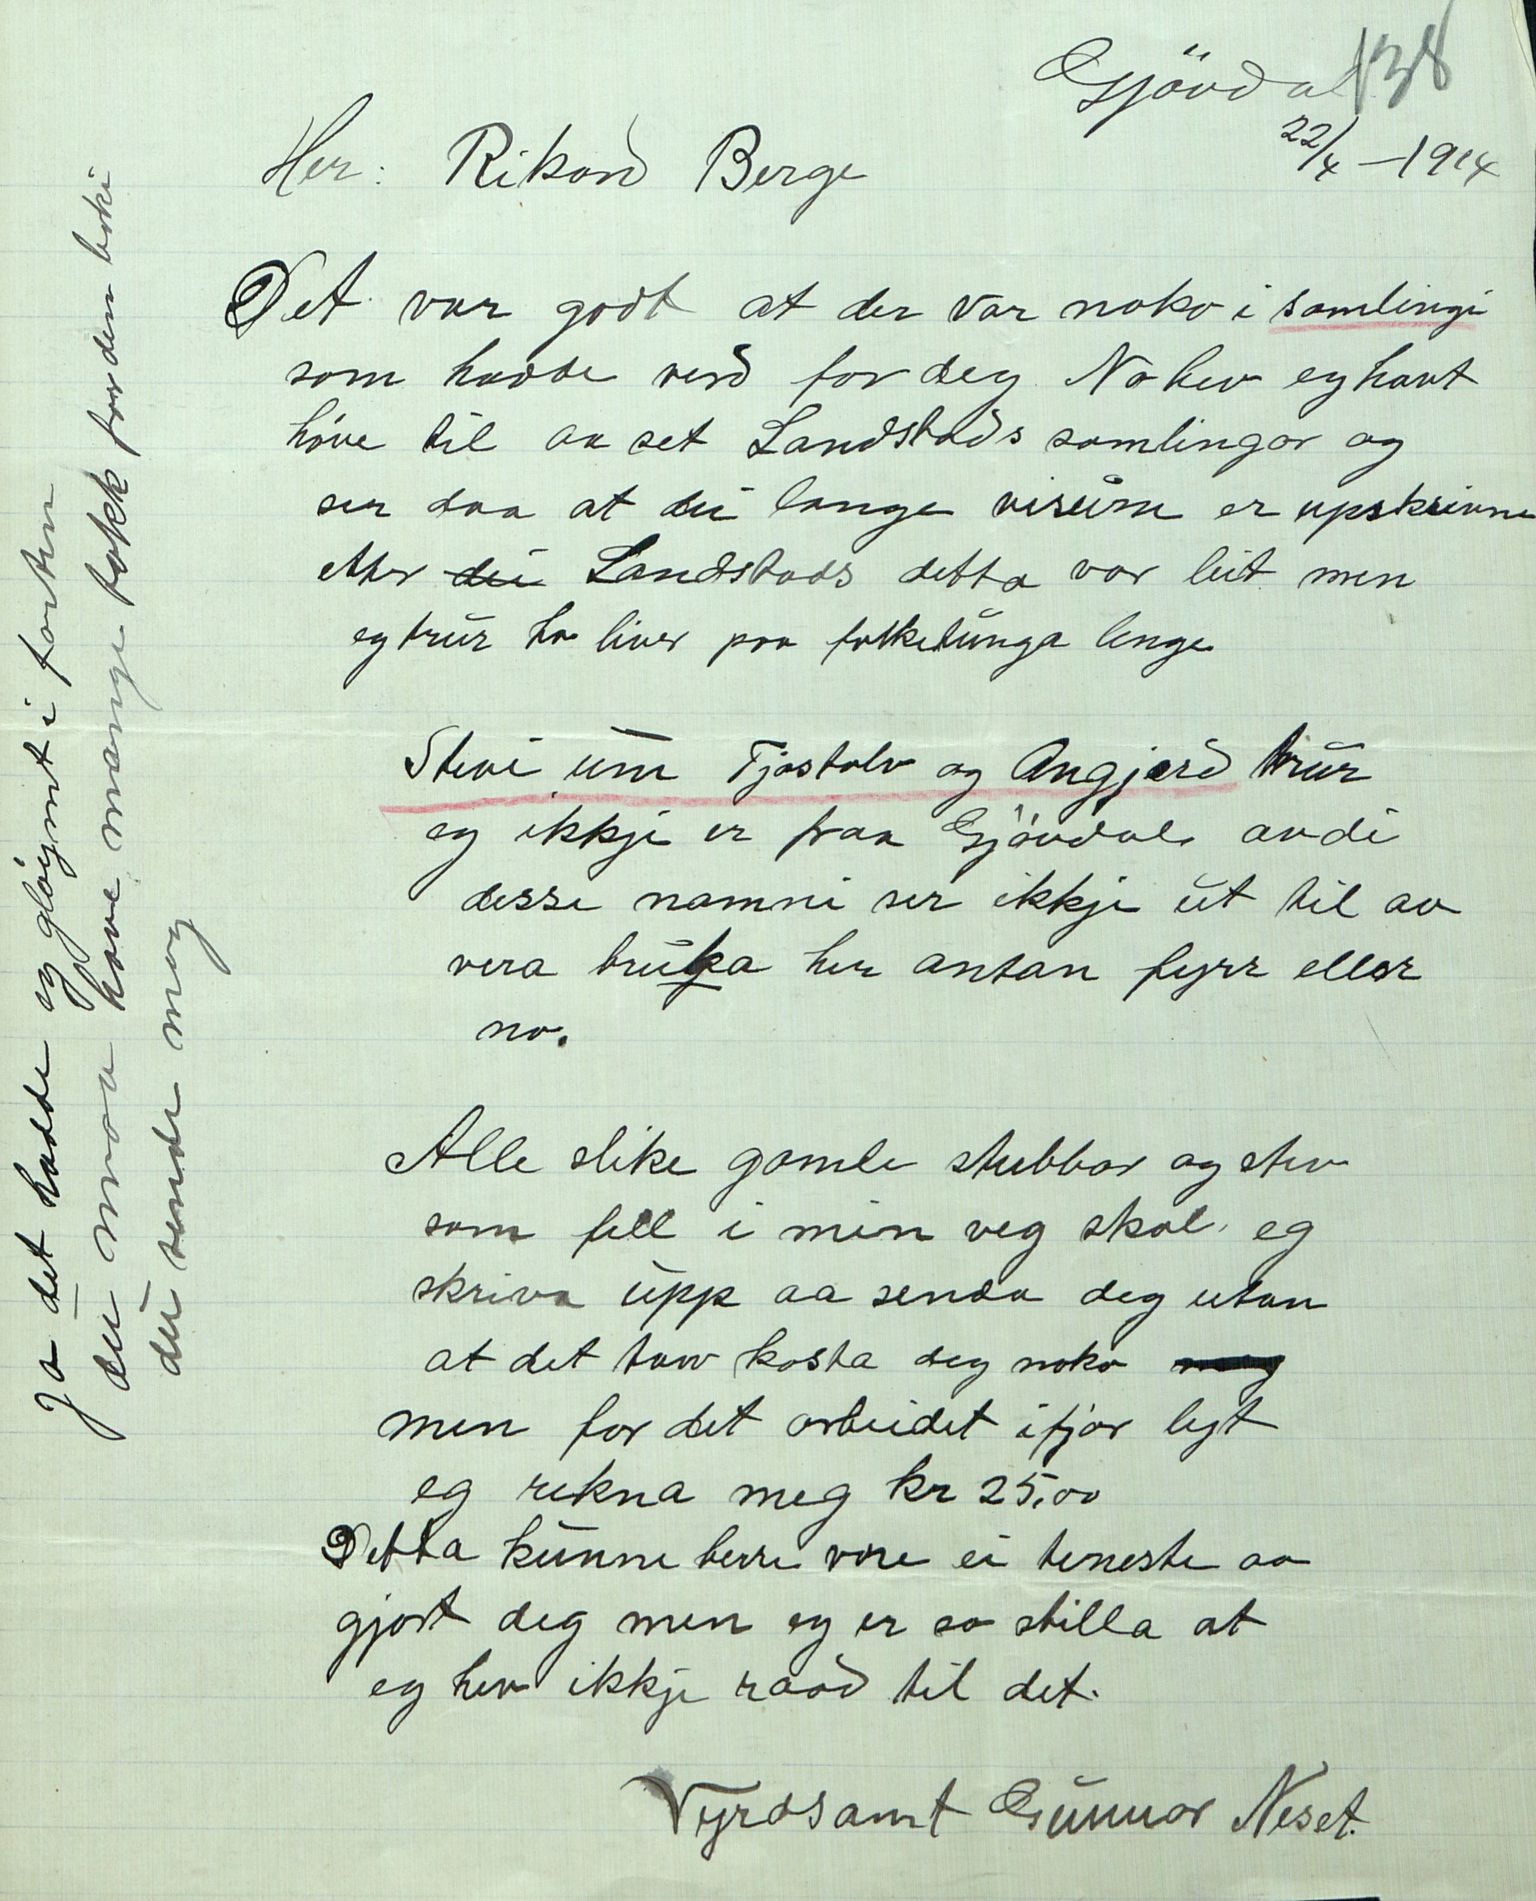 Gjövdal 138
22/4 – 1914
Her: Rikard Berge
Det var godt at der var noko i samlingi
som hadde verd for deg No hev eg havt
höve til aa set Landstads samlingar og
ser daa at dei lange viserne er upskrivne
etter dei Landstads detta var leit men
eg trur ho liver paa folketunga lenge
Stevi um Tjostolv og Angjerd trur
eg ikkje er fraa Gjövdal avdi
desse namni ser ikkje ut til av
vera bruka her antan fyrr eller
no.
Alle slike gamle stubbar og stev
som fell i min veg skal eg
skriva upp aa senda deg utan
at det tarv kosta deg noko meg
men for det arbeidet ifjor lyt
eg rekna meg kr 25,00
Detta kunne berre vore ei teneste aa
gjort deg men eg er so stilla at
eg hev ikkje raad til det.
Vyrdsamt Gunnar Neset.
Ja det hadde eg glöymt i farten
du maa have mange takk for den boki
du sende meg